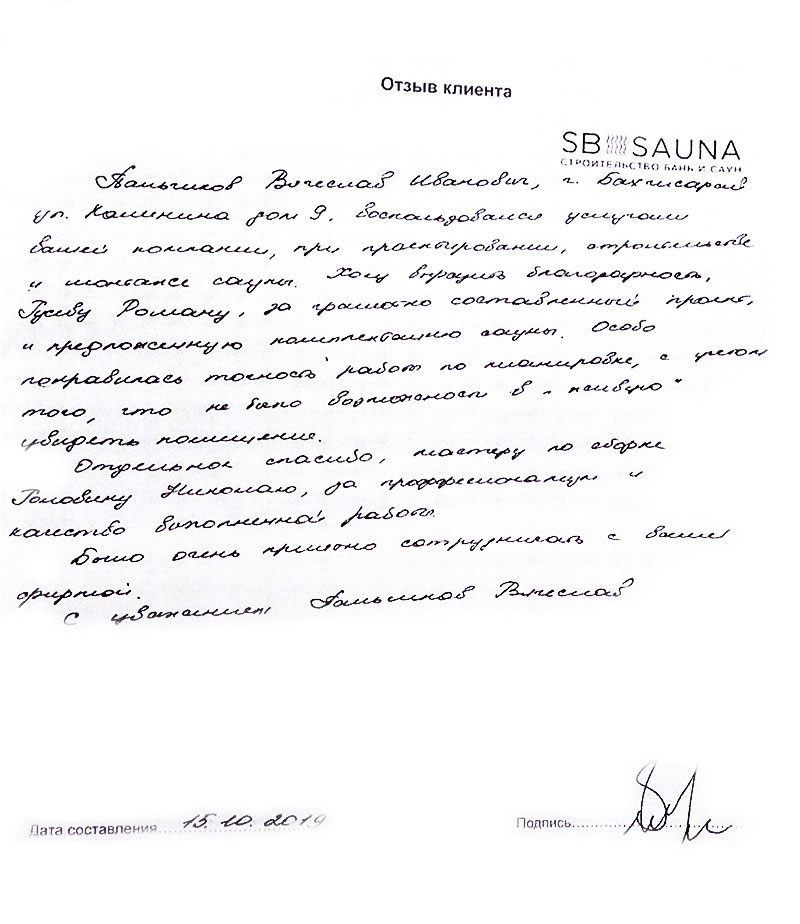 Отзыв клиента
SB SAUNA
СТРОИТЕЛЬСТВО БАНЬ И САУН
Вячеслав Иванович, г. Бахчисарай
ул. Калинина дом 9. воспользовался услугами
вашей компании, при проектировании, строительстве
и монтаже сауны. Хочу выразить благодарность,
Гусеву Роману, за грамотно составленный проект,
и предложенную комплектацию сауны. Особо
понравилась точность работ по планировке, с учетом
того, что не было возможности в "живую"
увидеть помещение.
Отдельное спасибо, мастеру по сборке
Головину Николаю, за профессионализм и
качество выполненной работы.
Было очень приятно сотрудничать с вашей
фирмой.
С уважением Вячеслав
Дата составления 15.10.2019
Подпись